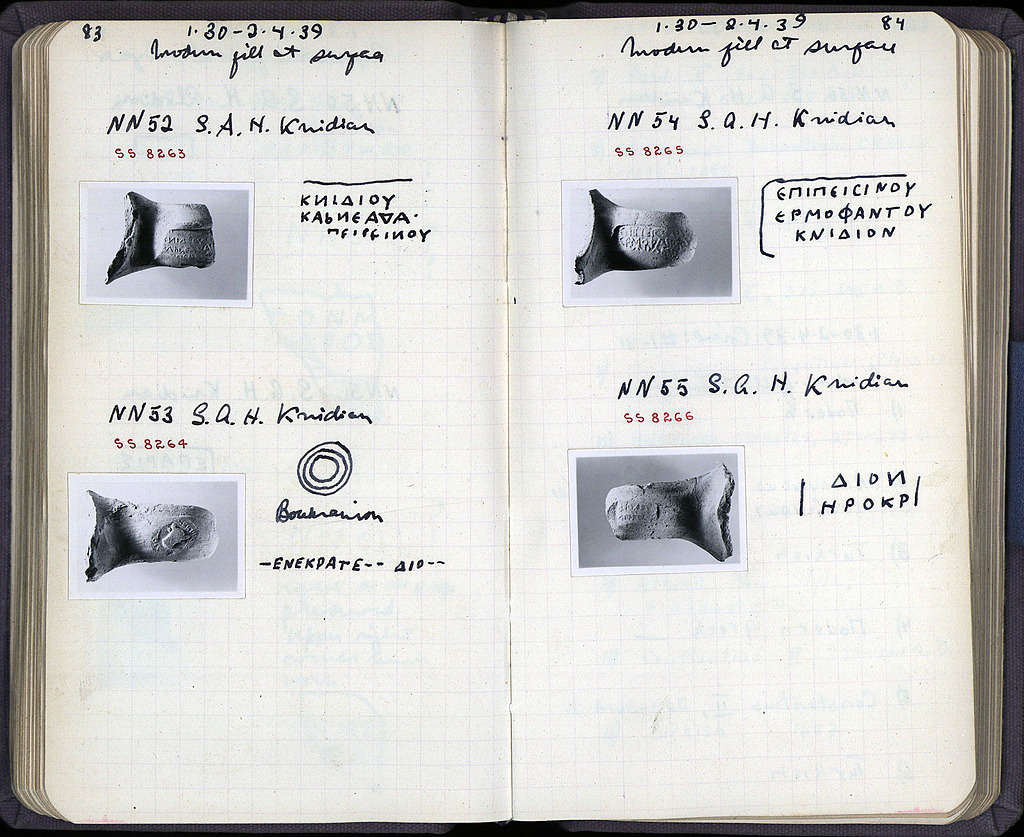 83 1·30-2·4·39
Modern fill at surface
NN52 S.A.H. Knidian
SS 8263
ΚΝΙΔΙΟΥ
NN53 S.A.H. Knidian
SS 8264
Boukranion
–ΕΝΕΚΡΑΤΕ-- ΔΙΟ--
1·30-2·4·39 84
Modern fill at surface
NN54 S.A.H. Knidian
SS 8265
ΕΠΙΠΕΙΣΙΝΟΥ
ΕΡΜΟΦΑΝΤΟΥ
ΚΝΙΔΙΟΝ
NN55 S.A.H. Knidian
SS 8266
ΔΙΟΝ
ΗΡΟΚΡ